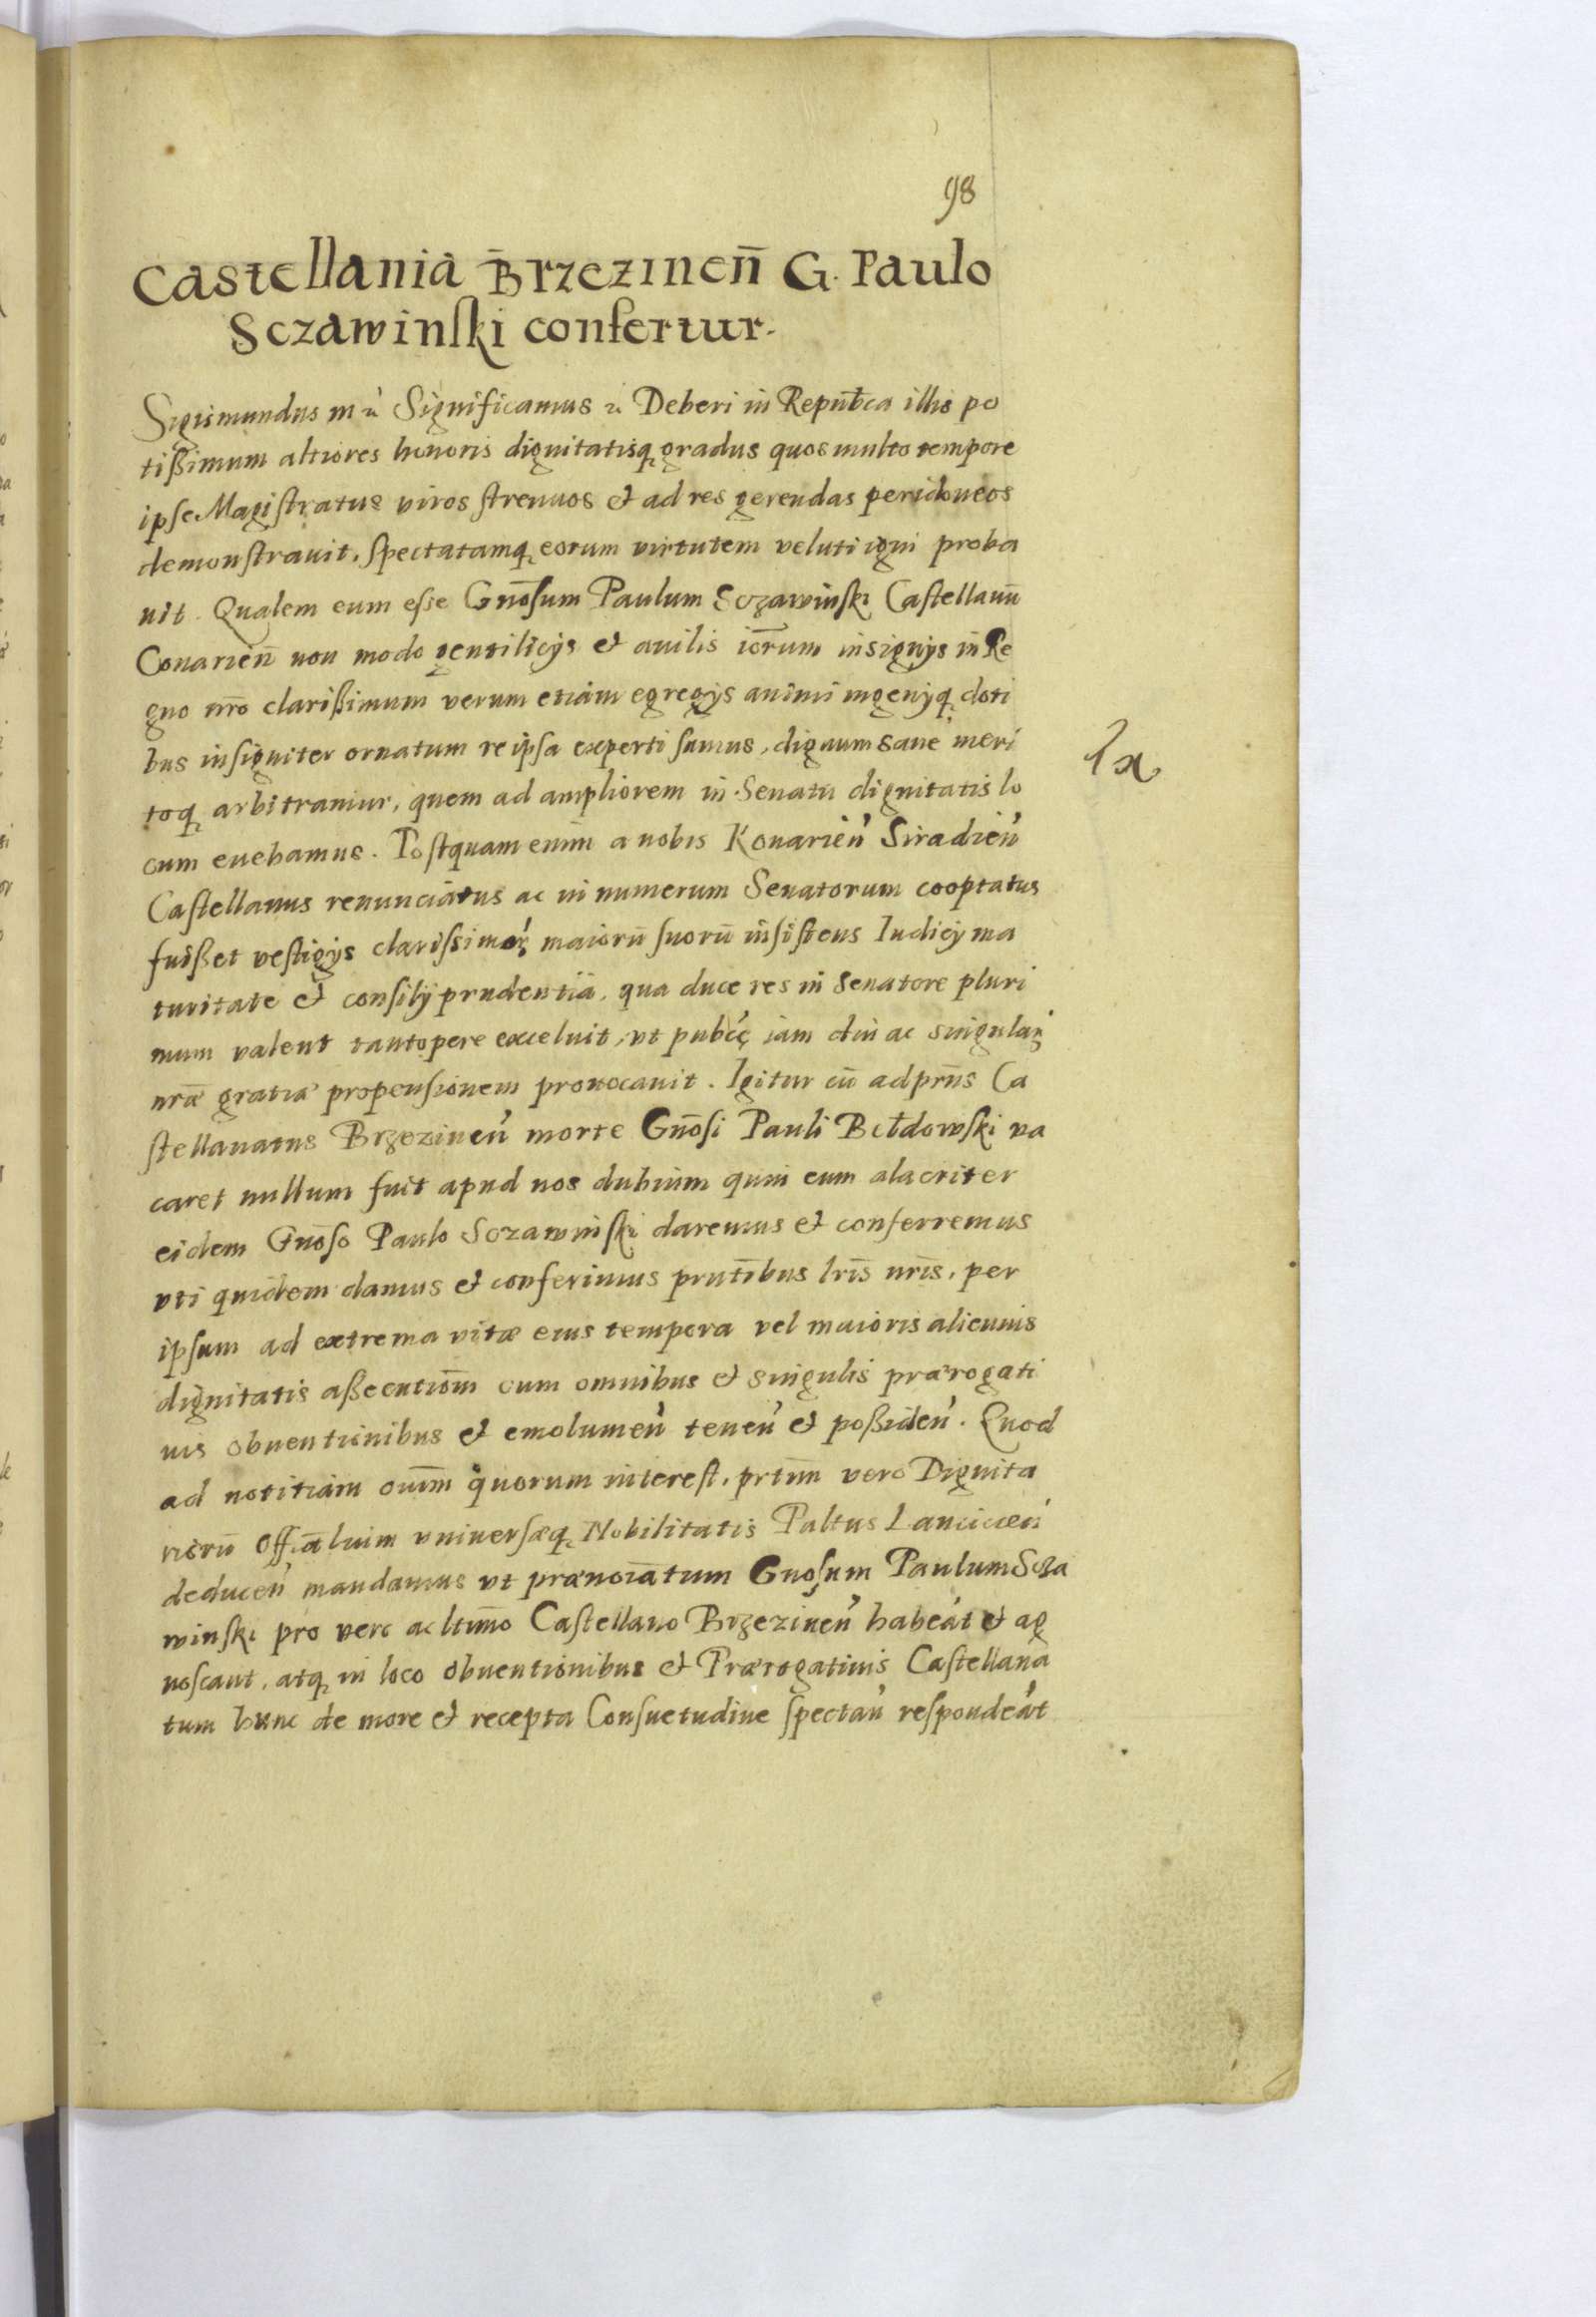 98
Castellania Brzezineñ G. Paulo
Sczawinski confertur.
Sigismundus m ꝛc Significamus ꝛc Deberi in Republca illis po
tißimum altiores honoris dignitatisq gradus quos multo tempore
ipse Magistratus viros strenuos et ad res gerendas peridoneos
demonstrauit, spectatamq eorum virtutem veluti igni proba
uit. Qualem eum esse Gnõsum Paulum Sczawinski Castellanũ
Conarieñ non modo gentilicijs et auilis iõrum insignijs in Re
gno nrõ clarißimum verum etiam egregijs animi ingenijq doti
bus insigniter ornatum re ipsa experti sumus, dignum sane meri
toq arbitramur, quem ad ampliorem in Senatu dignitatis lo
cum euehamus. Postquam enim a nobis Konarień Siradień
Castellanus renunciatus ac in numerum Senatorum cooptatus
fuißet vestigijs clarissimoꝝ maiorũ suorũ insistens Iudicij ma
turitate et consilij prudentia, qua duce res in Senatore pluri
mum valent tantopere exceluit, vt pubcę iam diu ac singulaꝝ
nrã gratiæ propensionem prouocauit. Igitur cũ ad prñs Ca
stellanatus Brzezineń morte Gnõsi Pauli Bełdowski va
caret nullum fuit apud nos dubium quin eum alacriter
eidem Gnõso Paulo Sczawinski daremus et conferremus
vti quidem damus et conferimus prntĩbus lrĩs nrĩs, per
ipsum ad extrema vitæ eius tempora vel maioris alicuius
dignitatis aßecutiõm cum omnibus et singulis prærogati
uis obuentionibus et emolumeń teneń et poßideń. Quod
ad notitiam oniũm quorum interest, prtĩm vero Dignita
riorũ Officãlium vniuersæq Nobilitatis Paltus Lancicień
deduceń mandamus vt prænoiãtum Gnosum Paulum Scza
winski pro vero ac ltimõ Castellano Brzezineń habeãt et ag
noscant, atq in loco obuentionibus et Prærogatiuis Castellana
tum hunc de more et recepta Consuetudine spectań respondeãt